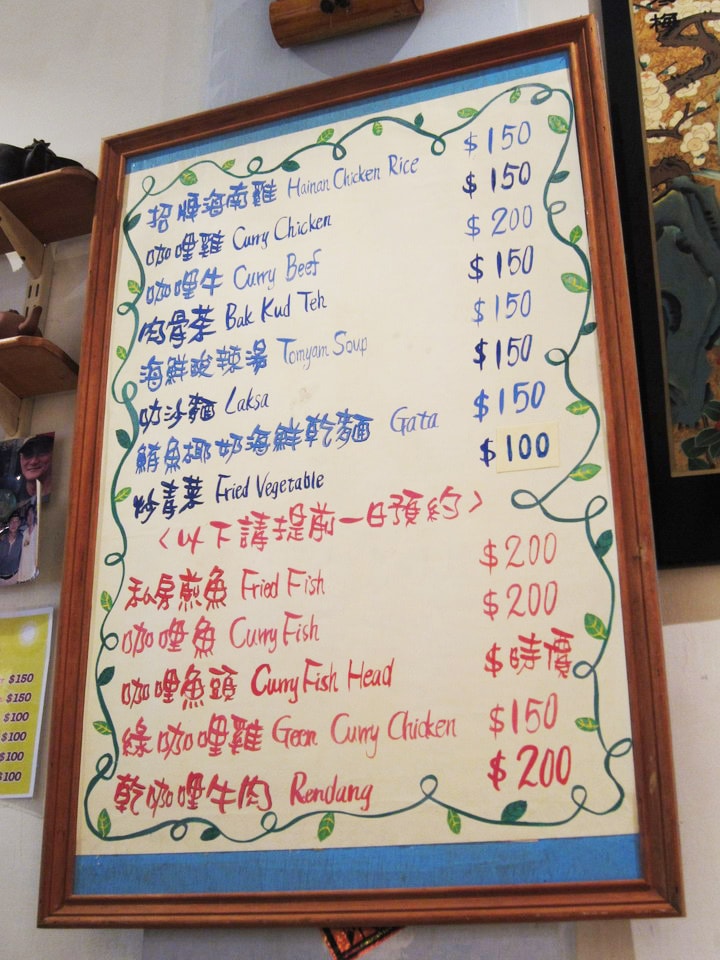 招牌海南雞 Hainan Chicken Rice $150
咖哩雞 Curry Chicken $150
咖哩牛 Curry Beef $200
肉骨茶 Bak Kud Teh $150
海鮮酸辣湯 Tomyam Soup $150
叻沙麵 Laksa $150
鮪魚椰奶海鮮乾麵 Gata $150
炒青菜 Fried Vegetable $100
<以下請提前一日預約>
私房煎魚 Fried Fish $200
咖哩魚 Curry Fish $200
咖哩魚頭 Curry Fish Head $時價
綠咖哩雞 Geen Curry Chicken $150
乾咖哩牛肉 Rendang $200
$150
$150
$100
$100
$100
$100
梅